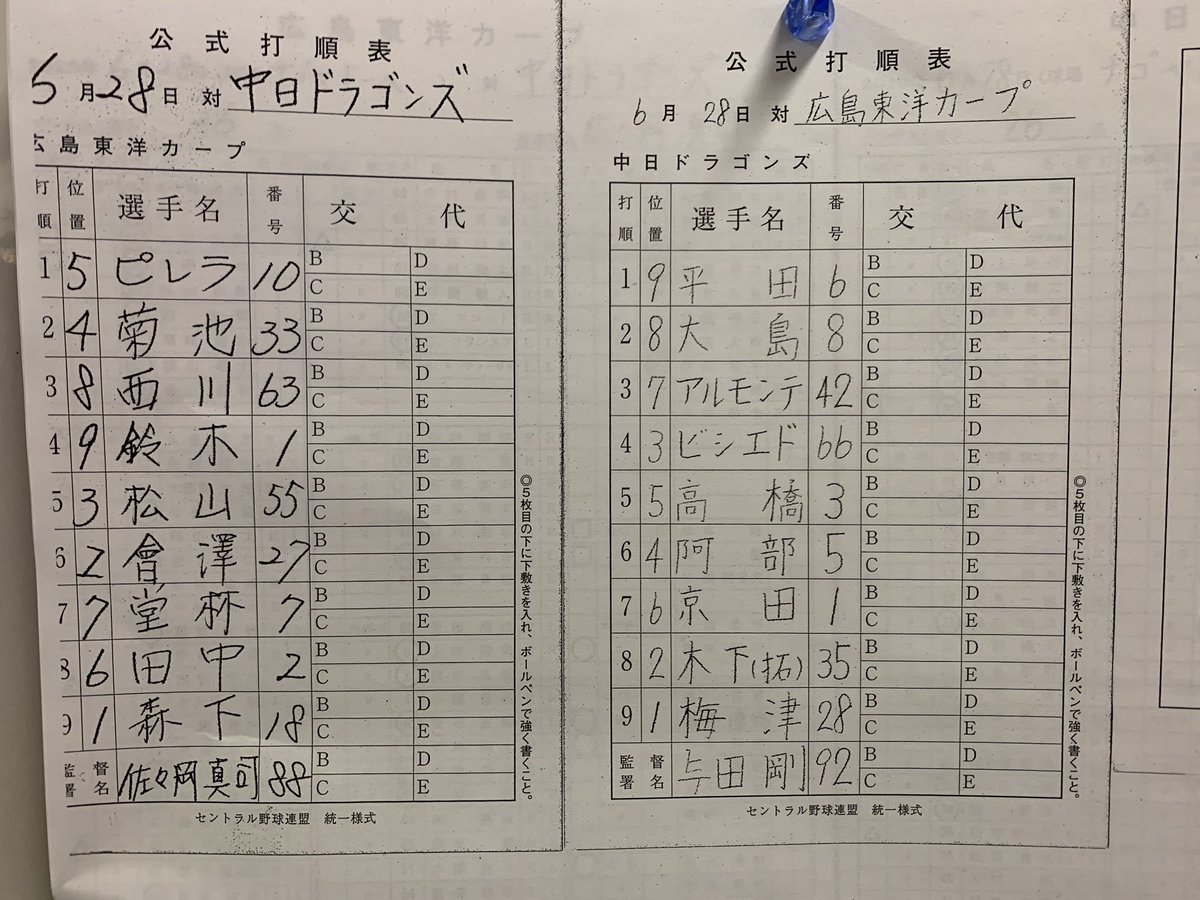 公式打順表
6月28日 対 中日ドラゴンズ
広島東洋カープ
打順 位置 選手名 番号 交代
1 5 ピレラ 10 B D C E
2 4 菊池 33 B D C E
3 8 西川 63 B D C E
4 9 鈴木 1 B D C E
5 3 松山 55 B D C E
6 2 會澤 27 B D C E
7 7 堂林 7 B D C E
8 6 田中 2 B D C E
9 1 森下 18 B D C E
監督署名 佐々岡真司 88 B D C E
◎5枚目の下に下敷きを入れ、ボールペンで強く書くこと。
セントラル野球連盟 統一様式
公式打順表
6月28日 対 広島東洋カープ
中日ドラゴンズ
打順 位置 選手名 番号 交代
1 9 平田 6 B D C E
2 8 大島 8 B D C E
3 7 アルモンテ 42 B D C E
4 3 ビシエド 66 B D C E
5 5 高橋 3 B D C E
6 4 阿部 5 B D C E
7 6 京田 1 B D C E
8 2 木下(拓) 35 B D C E
9 1 梅津 28 B D C E
監督署名 与田剛 92 B D C E
◎5枚目の下に下敷きを入れ、ボールペンで強く書くこと。
セントラル野球連盟 統一様式